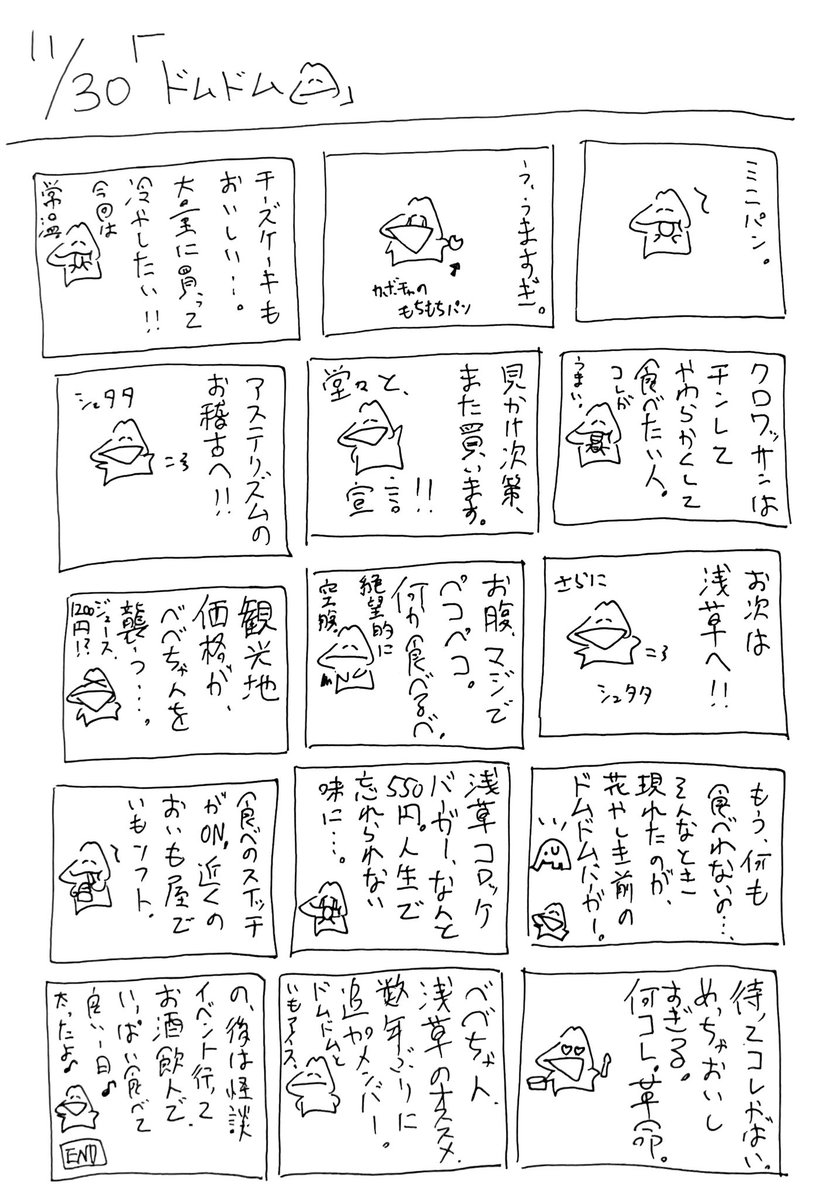 11/30「ドムドム」
ミニパン。
う、うますぎ。
カボチャの
もちもちパン
チーズケーキも
おいしい…。
大量に買って
冷やしたい!!
今回は
常温
クロワッサンは
チンして
やわらかくして
食べたい人。
コレが
うまい。
見かけ次第、
また買います。
堂々と、
宣言。!!
アステリズムの
お稽古へ!!
シュタタ
ころ
お次は
浅草へ!!
さらに
ころ
シュタタ
お腹、マジで
ペコペコ。
何か食べるべ。
絶望的に
空腹。
観光地
価格が、
べべちゃんを
襲っ…。
ジュース、
1200円!?
もう、何も
食べれないの…、
そんなとき
現れたのが、
花やしき前の
ドムドムバーガー。
浅草コロッケ
バーガー、なんと
550円。人生で
忘れられない
味に…。
食べのスイッチ
がON。近くの
おいも屋で
いもソフト。
待ってコレやばい。
めっちゃおいし
すぎる。
何コレ。革命。
べべちゃん、
浅草のオススメ
数年ぶりに
追加メンバー。
ドムドムと
いもアイス、
の、後は怪談
イベント行って
お酒飲んで、
いっぱい食べて
良い一日♪
太ったよ♪
END